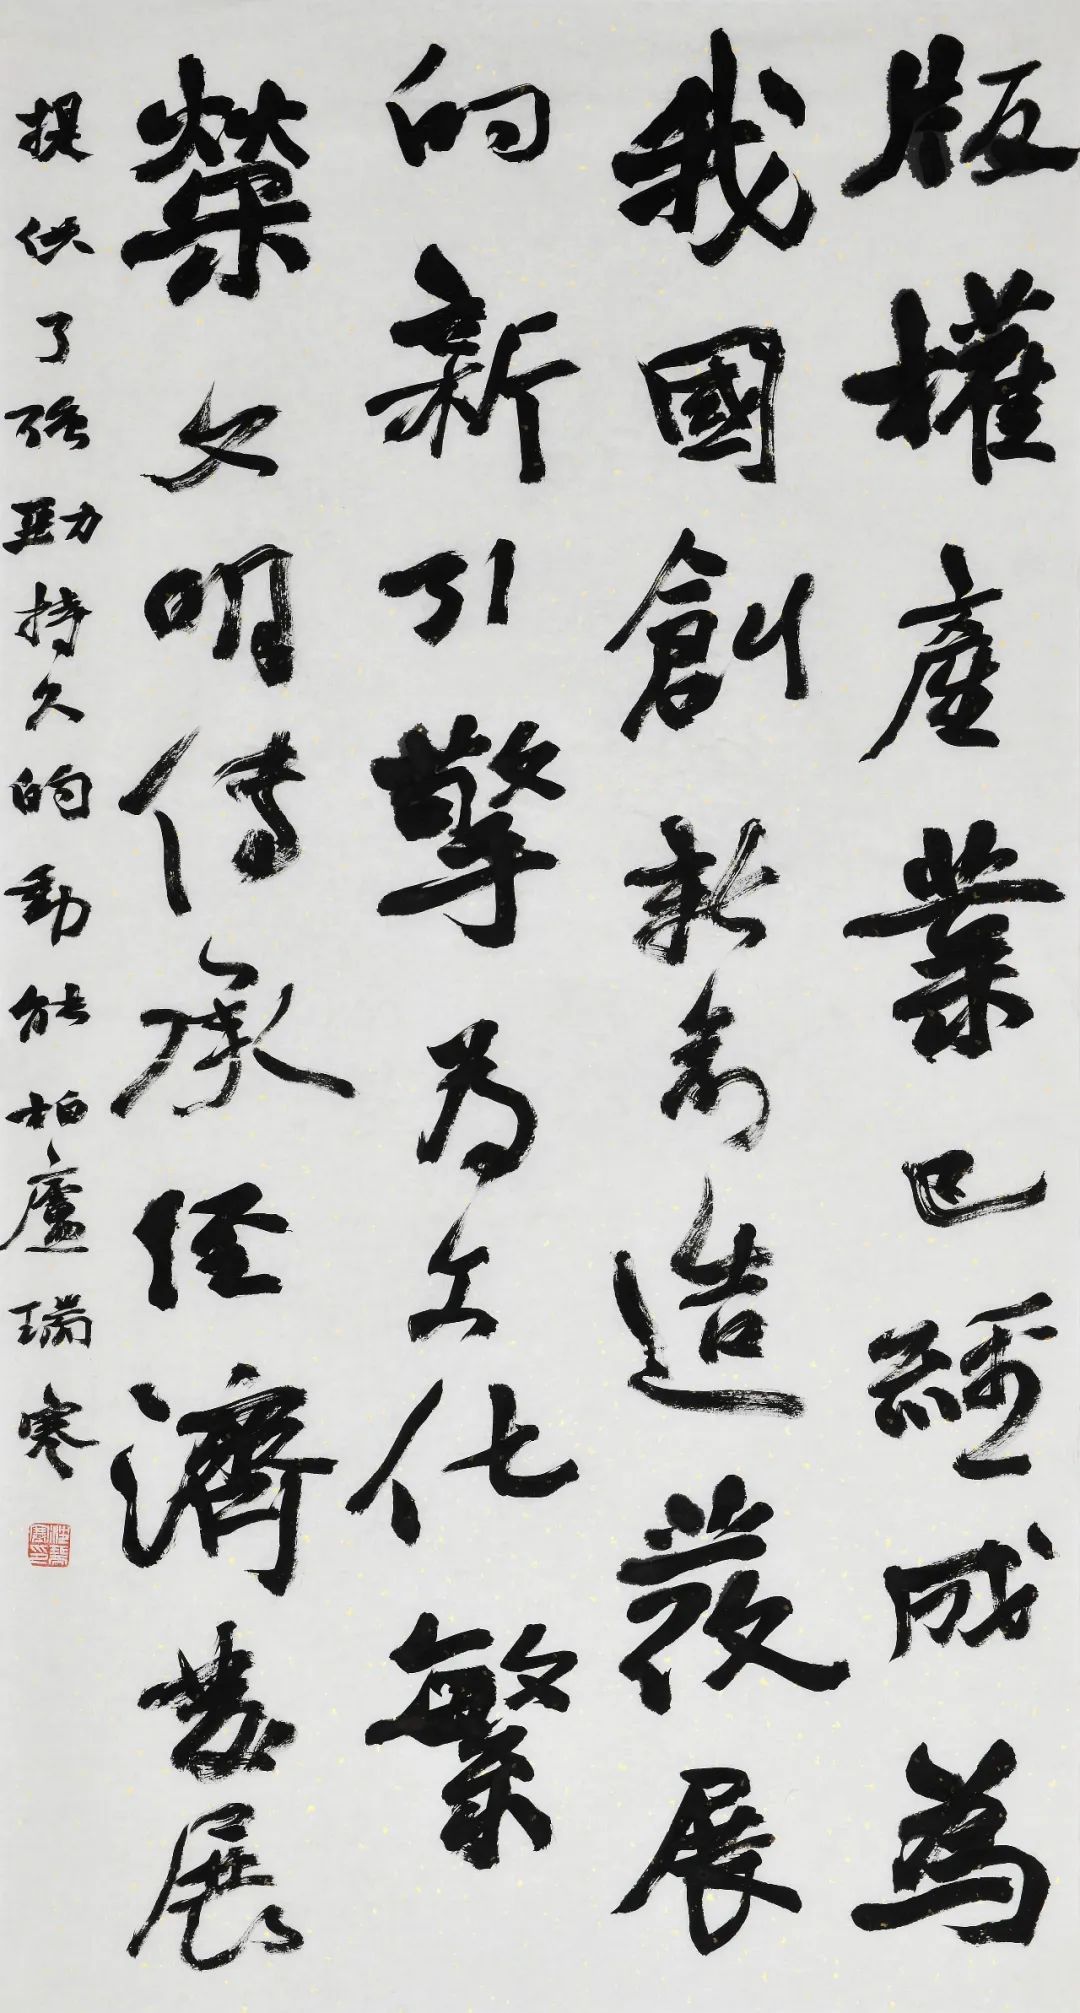 版權產業已經成為
我國創新創造發展
的新引擎為文化繁
榮文明傳承經濟發展
提供了強勁持久的動能柏廬瑞寒